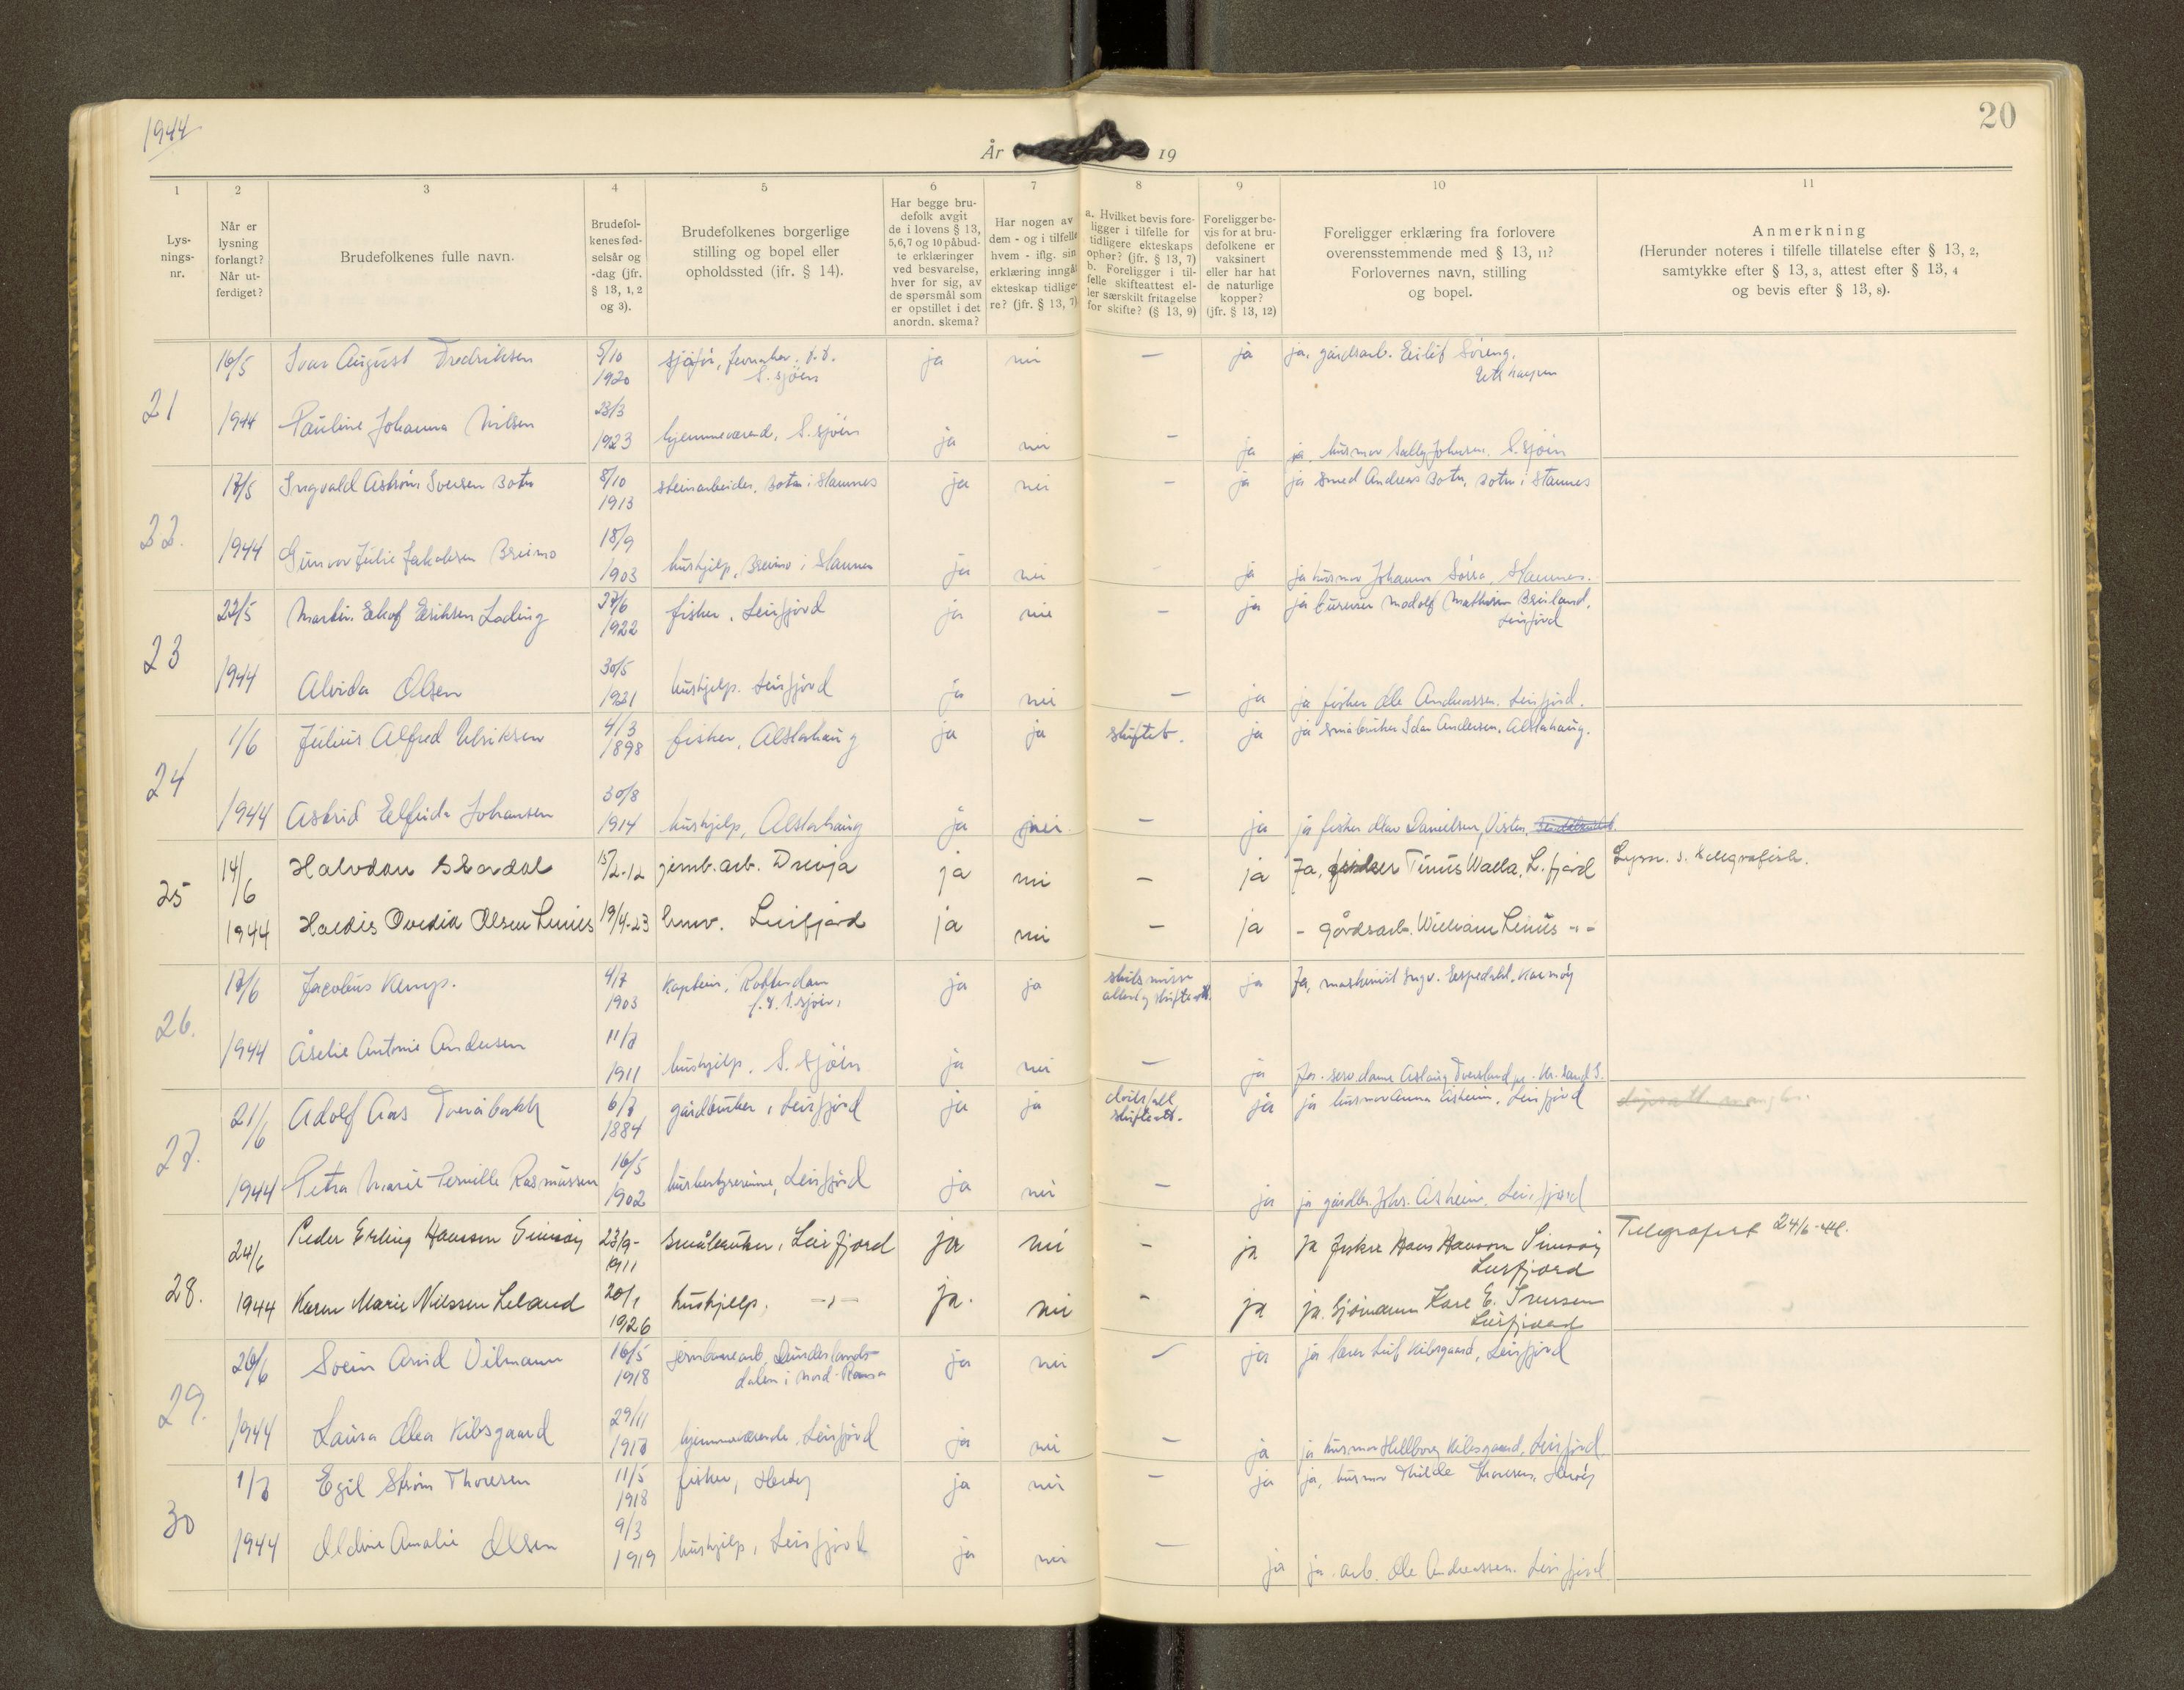 1944
20
År 19
1 2 3 4 5 6 7 8 9 10 11
Lys-
nings-
nr.
Når er
lysning
forlangt?
Når ut-
ferdiget?
Brudefolkenes fulle navn.
Brudefol-
kenes fød-
selsår og
-dag (jfr.
§ 13, 1, 2
og 3).
Brudefolkenes borgerlige
stilling og bopel eller
opholdssted (jfr. § 14).
Har begge bru-
defolk avgit
de i lovens § 13,
5,6,7 og 10 påbud-
te erklæringer
ved besvarelse,
hver for sig, av
de spørsmål som
er opstillet i det
anordn. skema?
Har nogen av
dem - og i tilfelle
hvem - iflg. sin
erklæring inngåt
ekteskap tidlige-
re? (jfr. § 13, 7)
a. Hvilket bevis fore-
ligger i tilfelle for
tidligere ekteskaps
ophør? (jfr. § 13, 7)
b. Foreligger i til-
felle skifteattest el-
ler særskilt fritagelse
for skifte? (§ 13, 9)
Foreligger be-
vis for at bru-
defolkene er
vaksinert
eller har hat
de naturlige
kopper?
(jfr. § 13, 12)
Foreligger erklæring fra forlovere
overensstemmende med § 13, 11?
Forlovernes navn, stilling
og bopel.
Anmerkning
(Herunder noteres i tilfelle tillatelse efter § 13, 2,
samtykke efter § 13, 3, attest efter § 13, 4
og bevis efter § 13, 8).
21 16/5 Ivar August Fredriksen 5/10 1920 sjåfør, S. sjøen ja nei — ja ja, gårdsarb. Eilif Søreng,
1944 Pauline Johanna Nilsen 23/3 1923 hjemmeværende, S. sjøen ja nei — ja ja. husmor Sally Johansen. S. sjøen
22. 17/5 Ingvald Astrøm Iversen Botn 8/10 1913 steinarbeider, Botn i Stamnes ja nei — ja ja smed Andreas Botn, Botn i Stamnes
1944 Gunvor Julie Jakobsen Breimo 18/9 1903 hushjelp, Breimo i Stamnes ja nei - ja ja husmor Johanna Sørra, Stamnes.
23 22/5 Martin Ekof Eriksen Lading 27/6 1922 fisker, Leirfjord ja nei — ja ja Modolf Mathisen Breiland,
Leirfjord
1944 Alvida Olsen 30/5 1921 hushjelp. Leirfjord ja nei — ja ja fisker Ole Andreassen. Leirfjord.
24 1/6 Julius Alfred Ulriksen 4/3 1898 fisker, Alstahaug ja ja skiftet. ja ja småbruker Idar Andersen, Alstahaug.
1944 Astrid Elfrida Johansen 30/8 1914 hushjelp, Alstahaug ja nei. — ja ja fisker Olav Danielsen, Visten,
25 14/6 Halvdan Stordal 15/2-12 jernb. arb. Drevja ja nei — ja Ja, fisker Tinus Walla, L. fjord Lysn. s. telegrafisk.
1944 Haldis Ovedia Olsen Leines 19/4-23 hmv. Leirfjord ja nei — ja - gårdsarb. William Leines -"-
26. 17/6 Jacobus Kemp. 4/7 1903 Kaptein, Rotterdam
f. t. S. sjøen, ja ja skilsmisse
attest og skifteatt. ja Ja, maskinist Ingv. Espedahl, Karmøy
1944 Åselie Antonie Andersen 11/7 1911 hushjelp. S. sjøen ja nei — ja Ja. serv. dame Aslaug Tversland pr. Kr. sand S.
27. 21/6 Adolf Aas Tveråbakk 6/7 1884 gårdbruker, Leirfjord ja ja dødsfall
skifteatt. ja ja husmor Anna Åsheim, Leirfjord
1944 Petra Marie Pernille Rasmussen 16/5 1902 husbestyrerinne, Leirfjord ja nei — ja ja gårdbr. Johs. Åsheim. Leirfjord
28. 24/6 Peder Erling Hansen Simsøy 23/9- 1911 Småbruker, Leirfjord ja nei - ja ja fisker Hans Hansen Simsøy
Leirfjord Telegrafisk 24/6-44.
1944 Karen Marie Nilssen Leland 20/1 1926 hushjelp, -"- ja. nei - ja ja. Sjømann Kare E. Iversen
Leirfjord
29. 26/6 Svein Arvid Vilmann 16/5 1918 jernbanearb. Dunderlands-
dalen i Nord-Rana ja nei — ja ja lærer Leif Kibsgaard, Leirfjord
1944 Laura Olea Kibsgaard 29/11 1917 hjemmeværende, Leirfjord ja nei — ja ja husmor Hellborg Kibsgaard, Leirfjord
30 1/7 Egil Strøm Thoresen 11/5 1918 fisker, Herøy ja nei — ja ja, husmor Hilde Thoresen, Herøy
1944 Oldine Amalie Olsen 9/3 1919 hushjelp, Leirfjord ja nei — ja ja arb. Ole Andreassen. Leirfjord